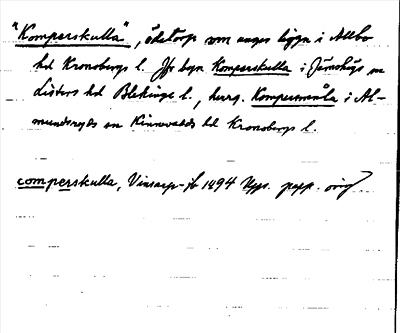 "Komperskulla", ödetorp som anges ligga i Allbo
hd Kronobergs l. Jfr byn Komperskulla i Jämshögs sn
Listers hd Blekinge l., herrg. Kompersmåla i Al-
mundsryds sn Kinnevalds hd Kronobergs l.
comperskulla, Vinsarp-jb 1494 Upps. papp. orig